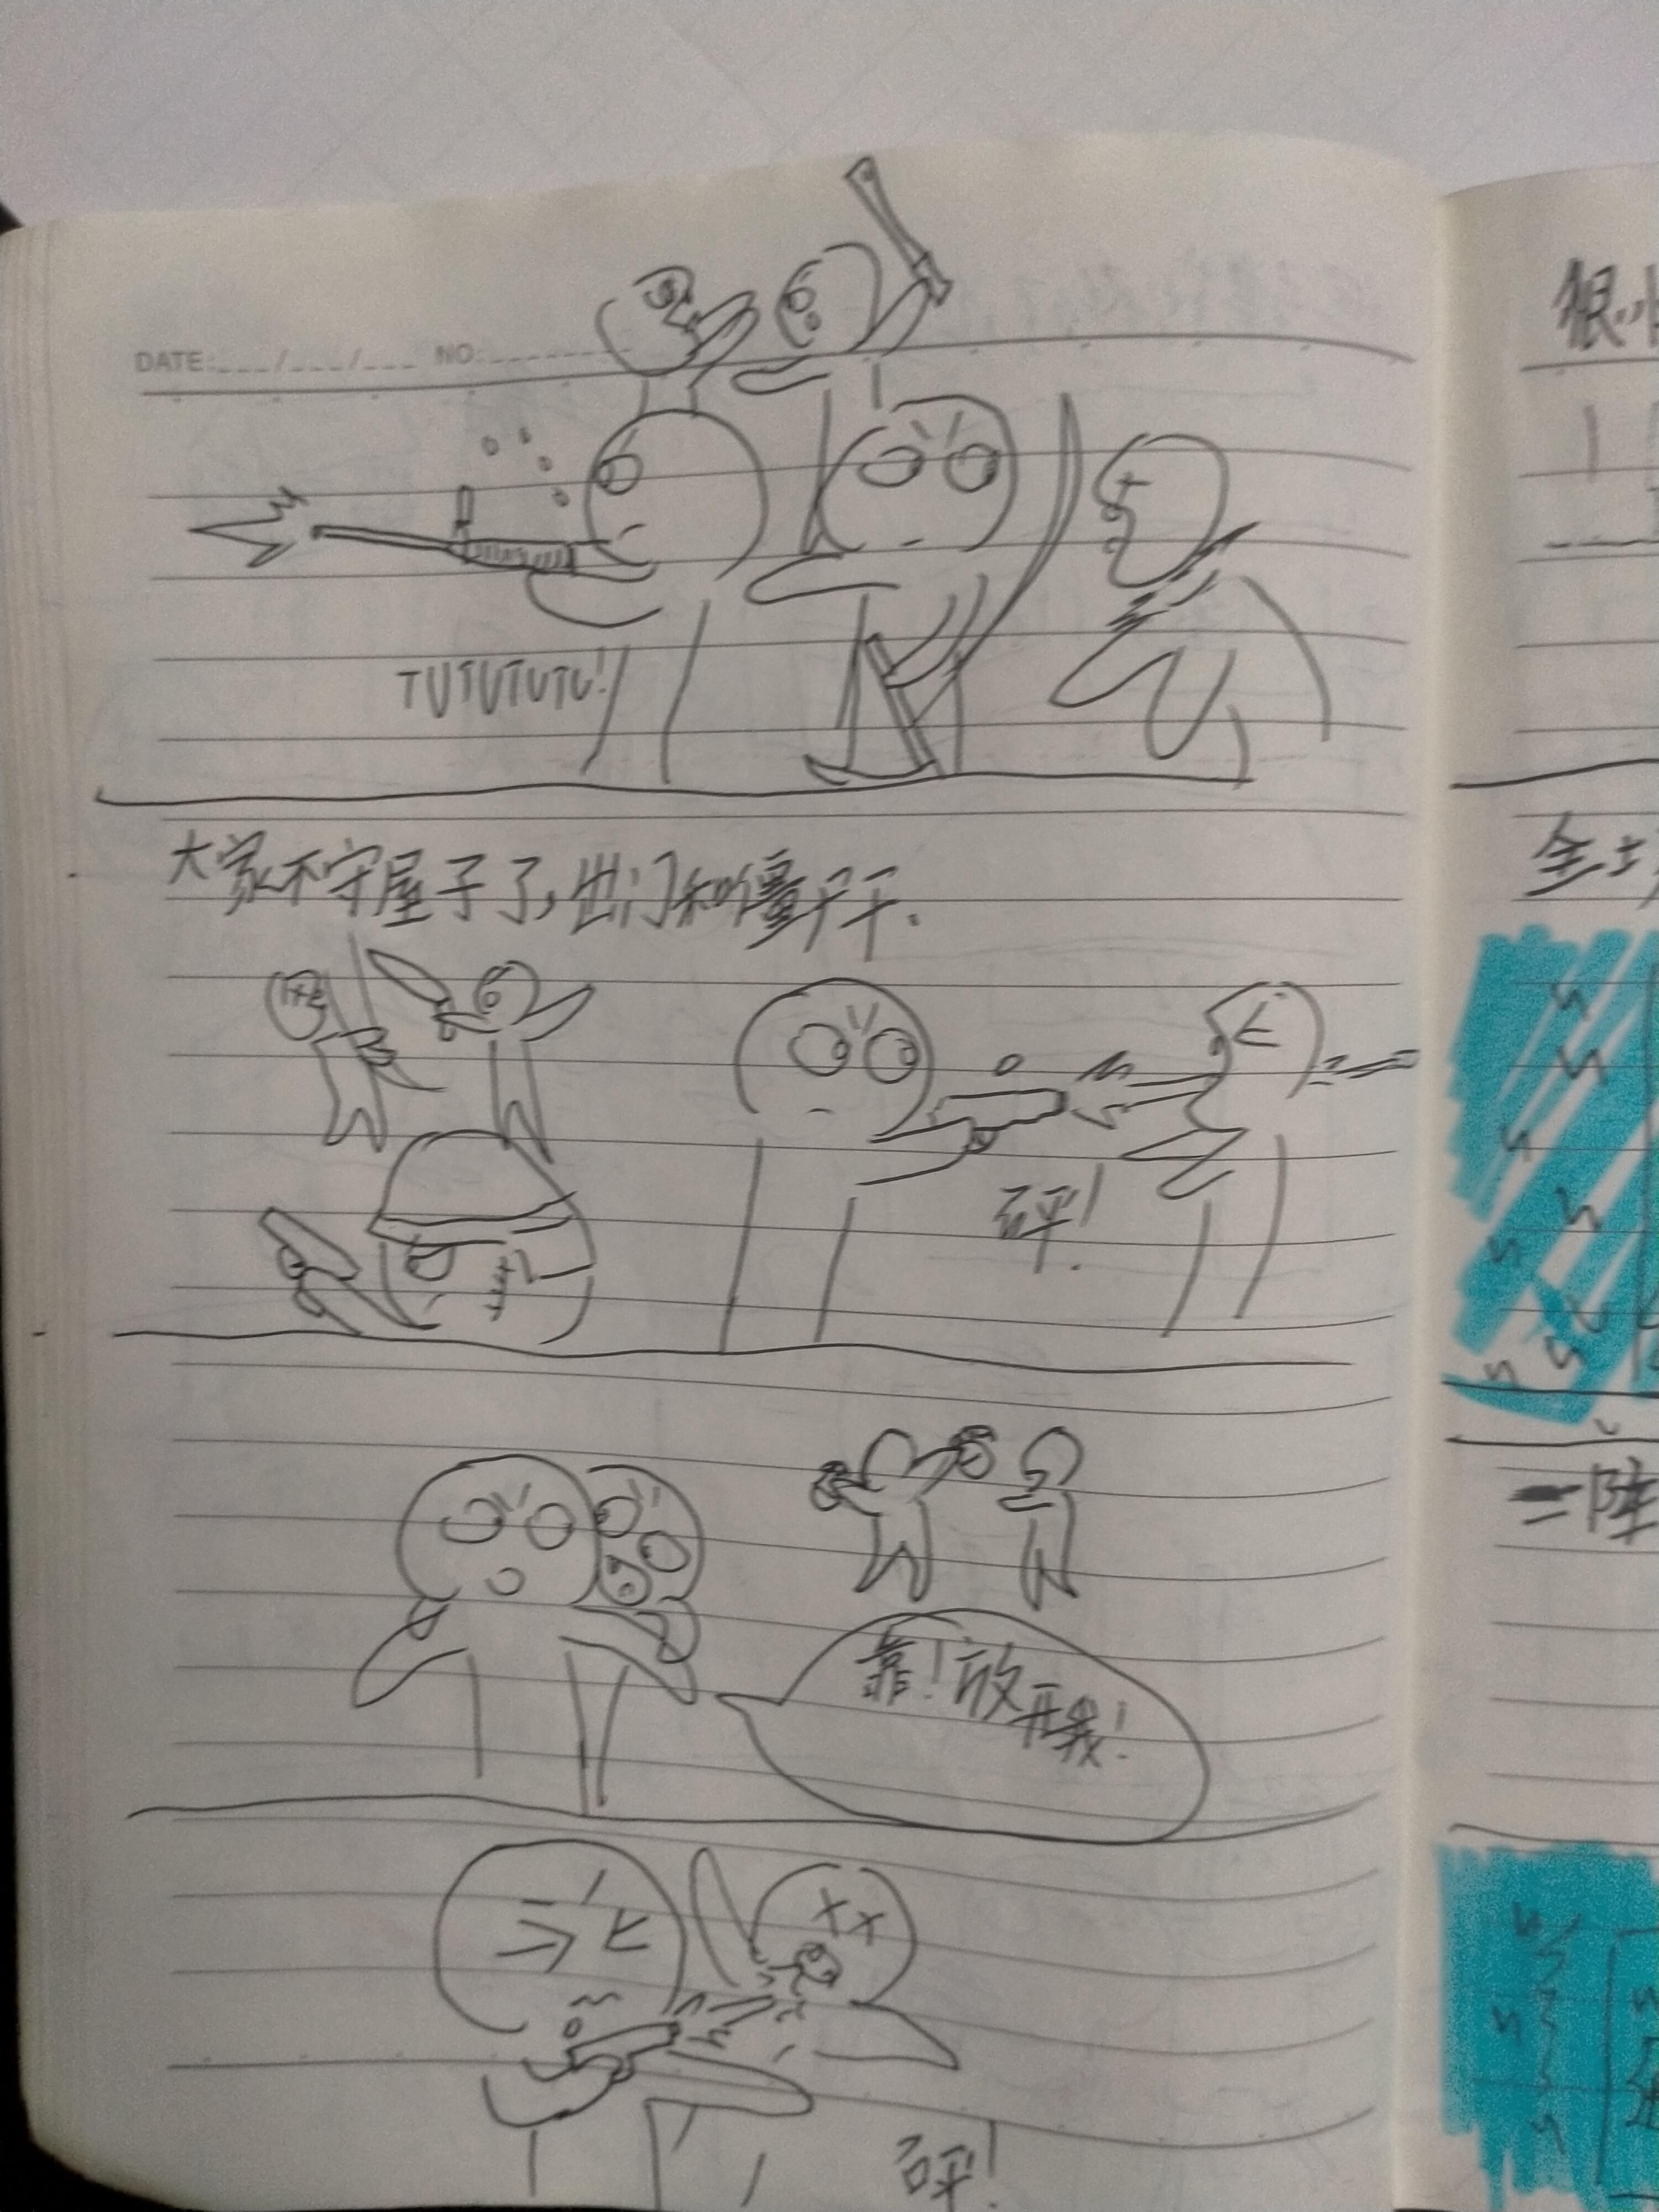 DATE:___/___/___ NO:________
TUTUTUTU!
大家不守屋子了,出门和僵干干.
砰!
靠!放开我!
砰!
狠
全土
二阵